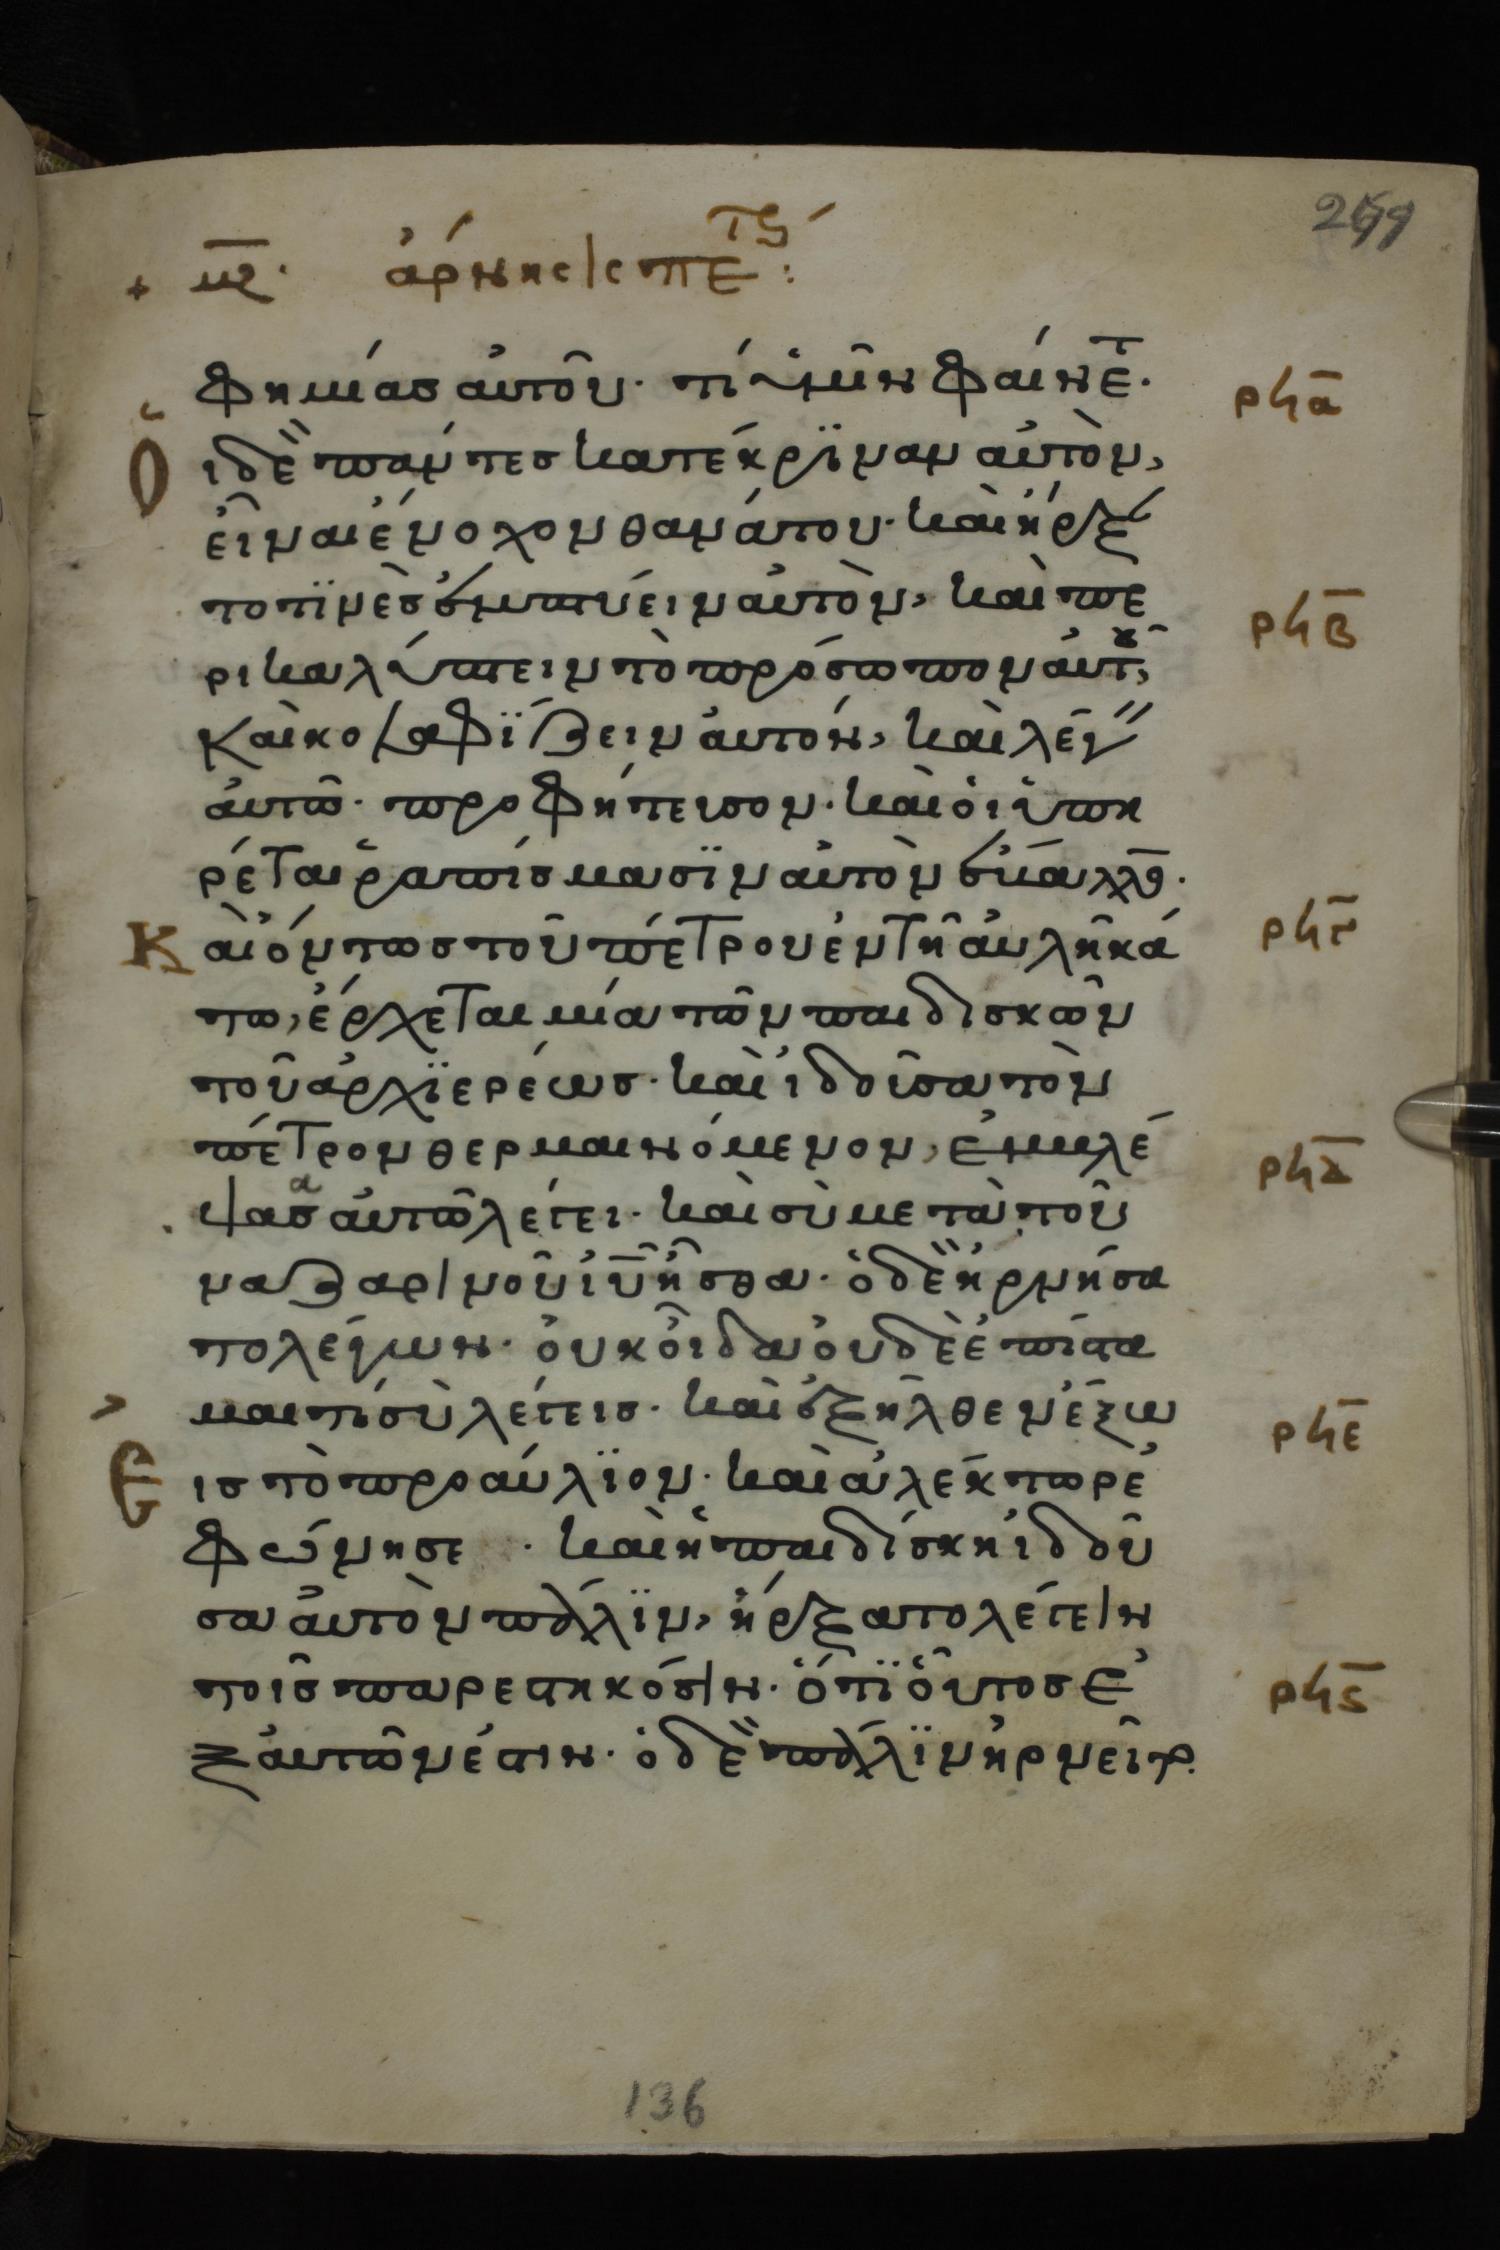 299
+ μϛ. ἄρνησις πέτρου:
φημίας αὐτοῦ. τί ὑμῖν φαίνετ. ρϟα
Ο ἱδὲ πάντες κατέκρϊναν αὐτὸν,
εἶναι ἔνοχον θανάτου. καὶ ἤρξ
τοτϊνὲς ἐμπτύειν αὐτὸν, καὶ πε ρϟβ
ρικαλύπτειν τὸ πρόσωπον αὐτοῦ,
καὶ κολαφϊζειν αὐτόν, καὶ λέγ
αὐτῶ. προφήτευσον. καὶ ὁι ὑπη
ρέται ῥαπίσμασϊν αὐτὸν ἔβαλλον.
Κ αὶ ὄντος τοῦ πέτρου ἐν τῆ αὐλῆ κά ρϟγ
τω, ἔρχεται μία τῶν παιδισκῶν
τοῦ ἀρχϊερέως. καὶ ἰδοῦσα τὸν
πέτρον θερμαινόμενον, ἐμβλέ ρϟδ
ψασα αὐτῶ λέγει. καὶ σὺ μετὰ τοῦ
ναζαρινοῦ ἰῦ ἦσθα. ὁ δὲ ἠρνήσα
το λέγων. οὐκ οἶδα οὐδὲ ἐπίστα
μαι τί σὺ λέγεις. καὶ ἐξῆλθεν ἔξω ρϟε
Ε ις τὸ προαύλϊον. καὶ ἀλέκτωρ ἐ
φώνησε. καὶ ἡ παιδίσκη ἰδοῦ
σα αὐτὸν πάλϊν, ἤρξατο λέγειν
τοῖς παρεστηκόσιν. ὅτϊ οὗτος ἐ ρϟϛ
ξ αὐτῶν ἐστιν. ὁ δὲ πάλϊν ἠρνεῖτο.
136